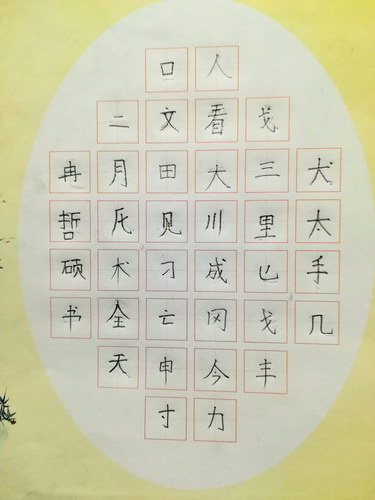 口人
二文看戈
冉月田大三犬
哲氏见川里太
硕术刁成也手
书全亡冈戈几
天申今丰
寸力